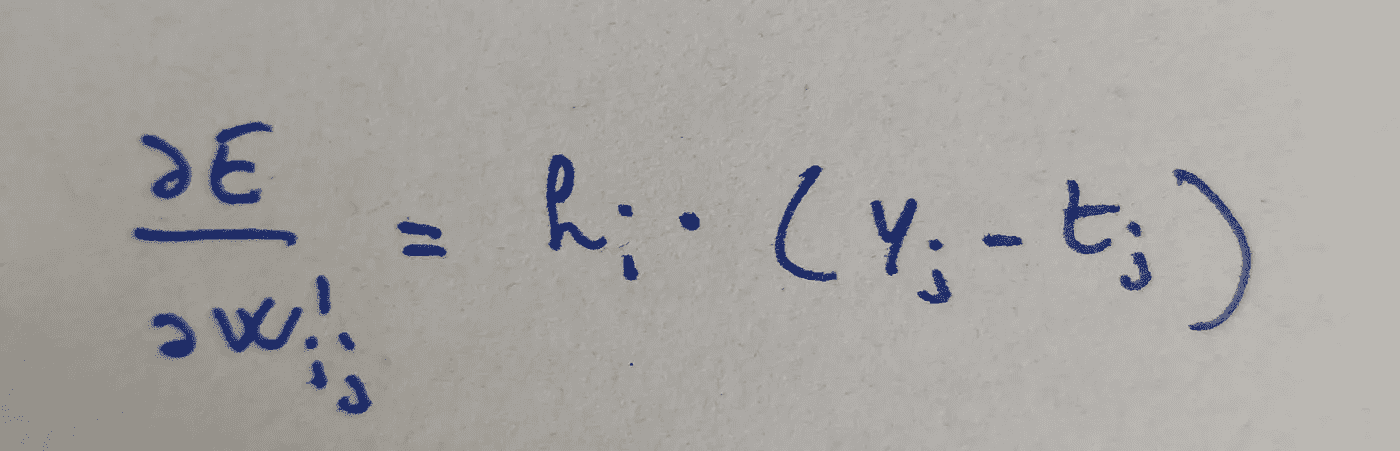 ∂E/∂w'ᵢⱼ = hᵢ · (yⱼ - tⱼ)